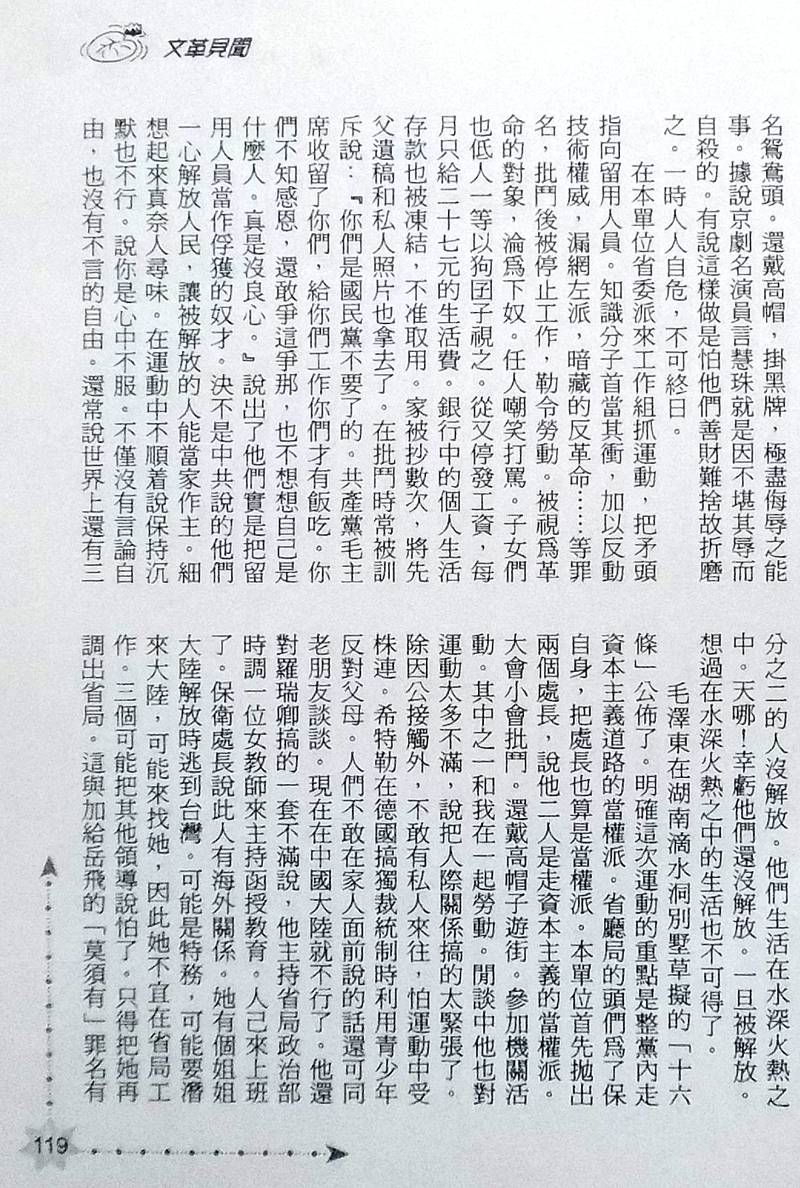 文革見聞
名鴛鴦頭。還戴高帽，掛黑牌，極盡侮辱之能
事。據說京劇名演員言慧珠就是因不堪其辱而
自殺的。有說這樣做是怕他們善財難捨故折磨
之。一時人人自危，不可終日。
在本單位省委派來工作組抓運動，把矛頭
指向留用人員。知識分子首當其衝，加以反動
技術權威，漏網左派，暗藏的反革命……等罪
名，批鬥後被停止工作，勒令勞動。被視爲革
命的對象，淪爲下奴。任人嘲笑打罵。子女們
也低人一等以狗囝子視之。從又停發工資，每
月只給二十七元的生活費。銀行中的個人生活
存款也被凍結，不准取用。家被抄數次，將先
父遺稿和私人照片也拿去了。在批鬥時常被訓
斥說：『你們是國民黨不要了的。共產黨毛主
席收留了你們，給你們工作你們才有飯吃。你
們不知感恩，還敢爭這爭那，也不想想自己是
什麼人。真是沒良心。』說出了他們實是把留
用人員當作俘獲的奴才。決不是中共說的他們
一心解放人民，讓被解放的人能當家作主。細
想起來真奈人尋味。在運動中不順着說保持沉
默也不行。說你是心中不服。不僅沒有言論自
由，也沒有不言的自由。還常說世界上還有三
分之二的人沒解放。他們生活在水深火熱之
中。天哪！幸虧他們還沒解放。一旦被解放。
想過在水深火熱之中的生活也不可得了。
毛澤東在湖南滴水洞別墅草擬的「十六
條」公佈了。明確這次運動的重點是整黨內走
資本主義道路的當權派。省廳局的頭們爲了保
自身，把處長也算是當權派。本單位首先拋出
兩個處長，說他二人是走資本主義的當權派。
大會小會批鬥。還戴高帽子遊街。參加機關活
動。其中之一和我在一起勞動。閒談中他也對
運動太多不滿，說把人際關係搞的太緊張了。
除因公接觸外，不敢有私人來往，怕運動中受
株連。希特勒在德國搞獨裁統制時利用青少年
反對父母。人們不敢在家人面前說的話還可同
老朋友談談。現在在中國大陸就不行了。他還
對羅瑞卿搞的一套不滿說，他主持省局政治部
時調一位女教師來主持函授教育。人己來上班
了。保衛處長說此人有海外關係。她有個姐姐
大陸解放時逃到台灣。可能是特務，可能要潛
來大陸，可能來找她，因此她不宜在省局工
作。三個可能把其他領導說怕了。只得把她再
調出省局。這與加給岳飛的「莫須有」罪名有
119